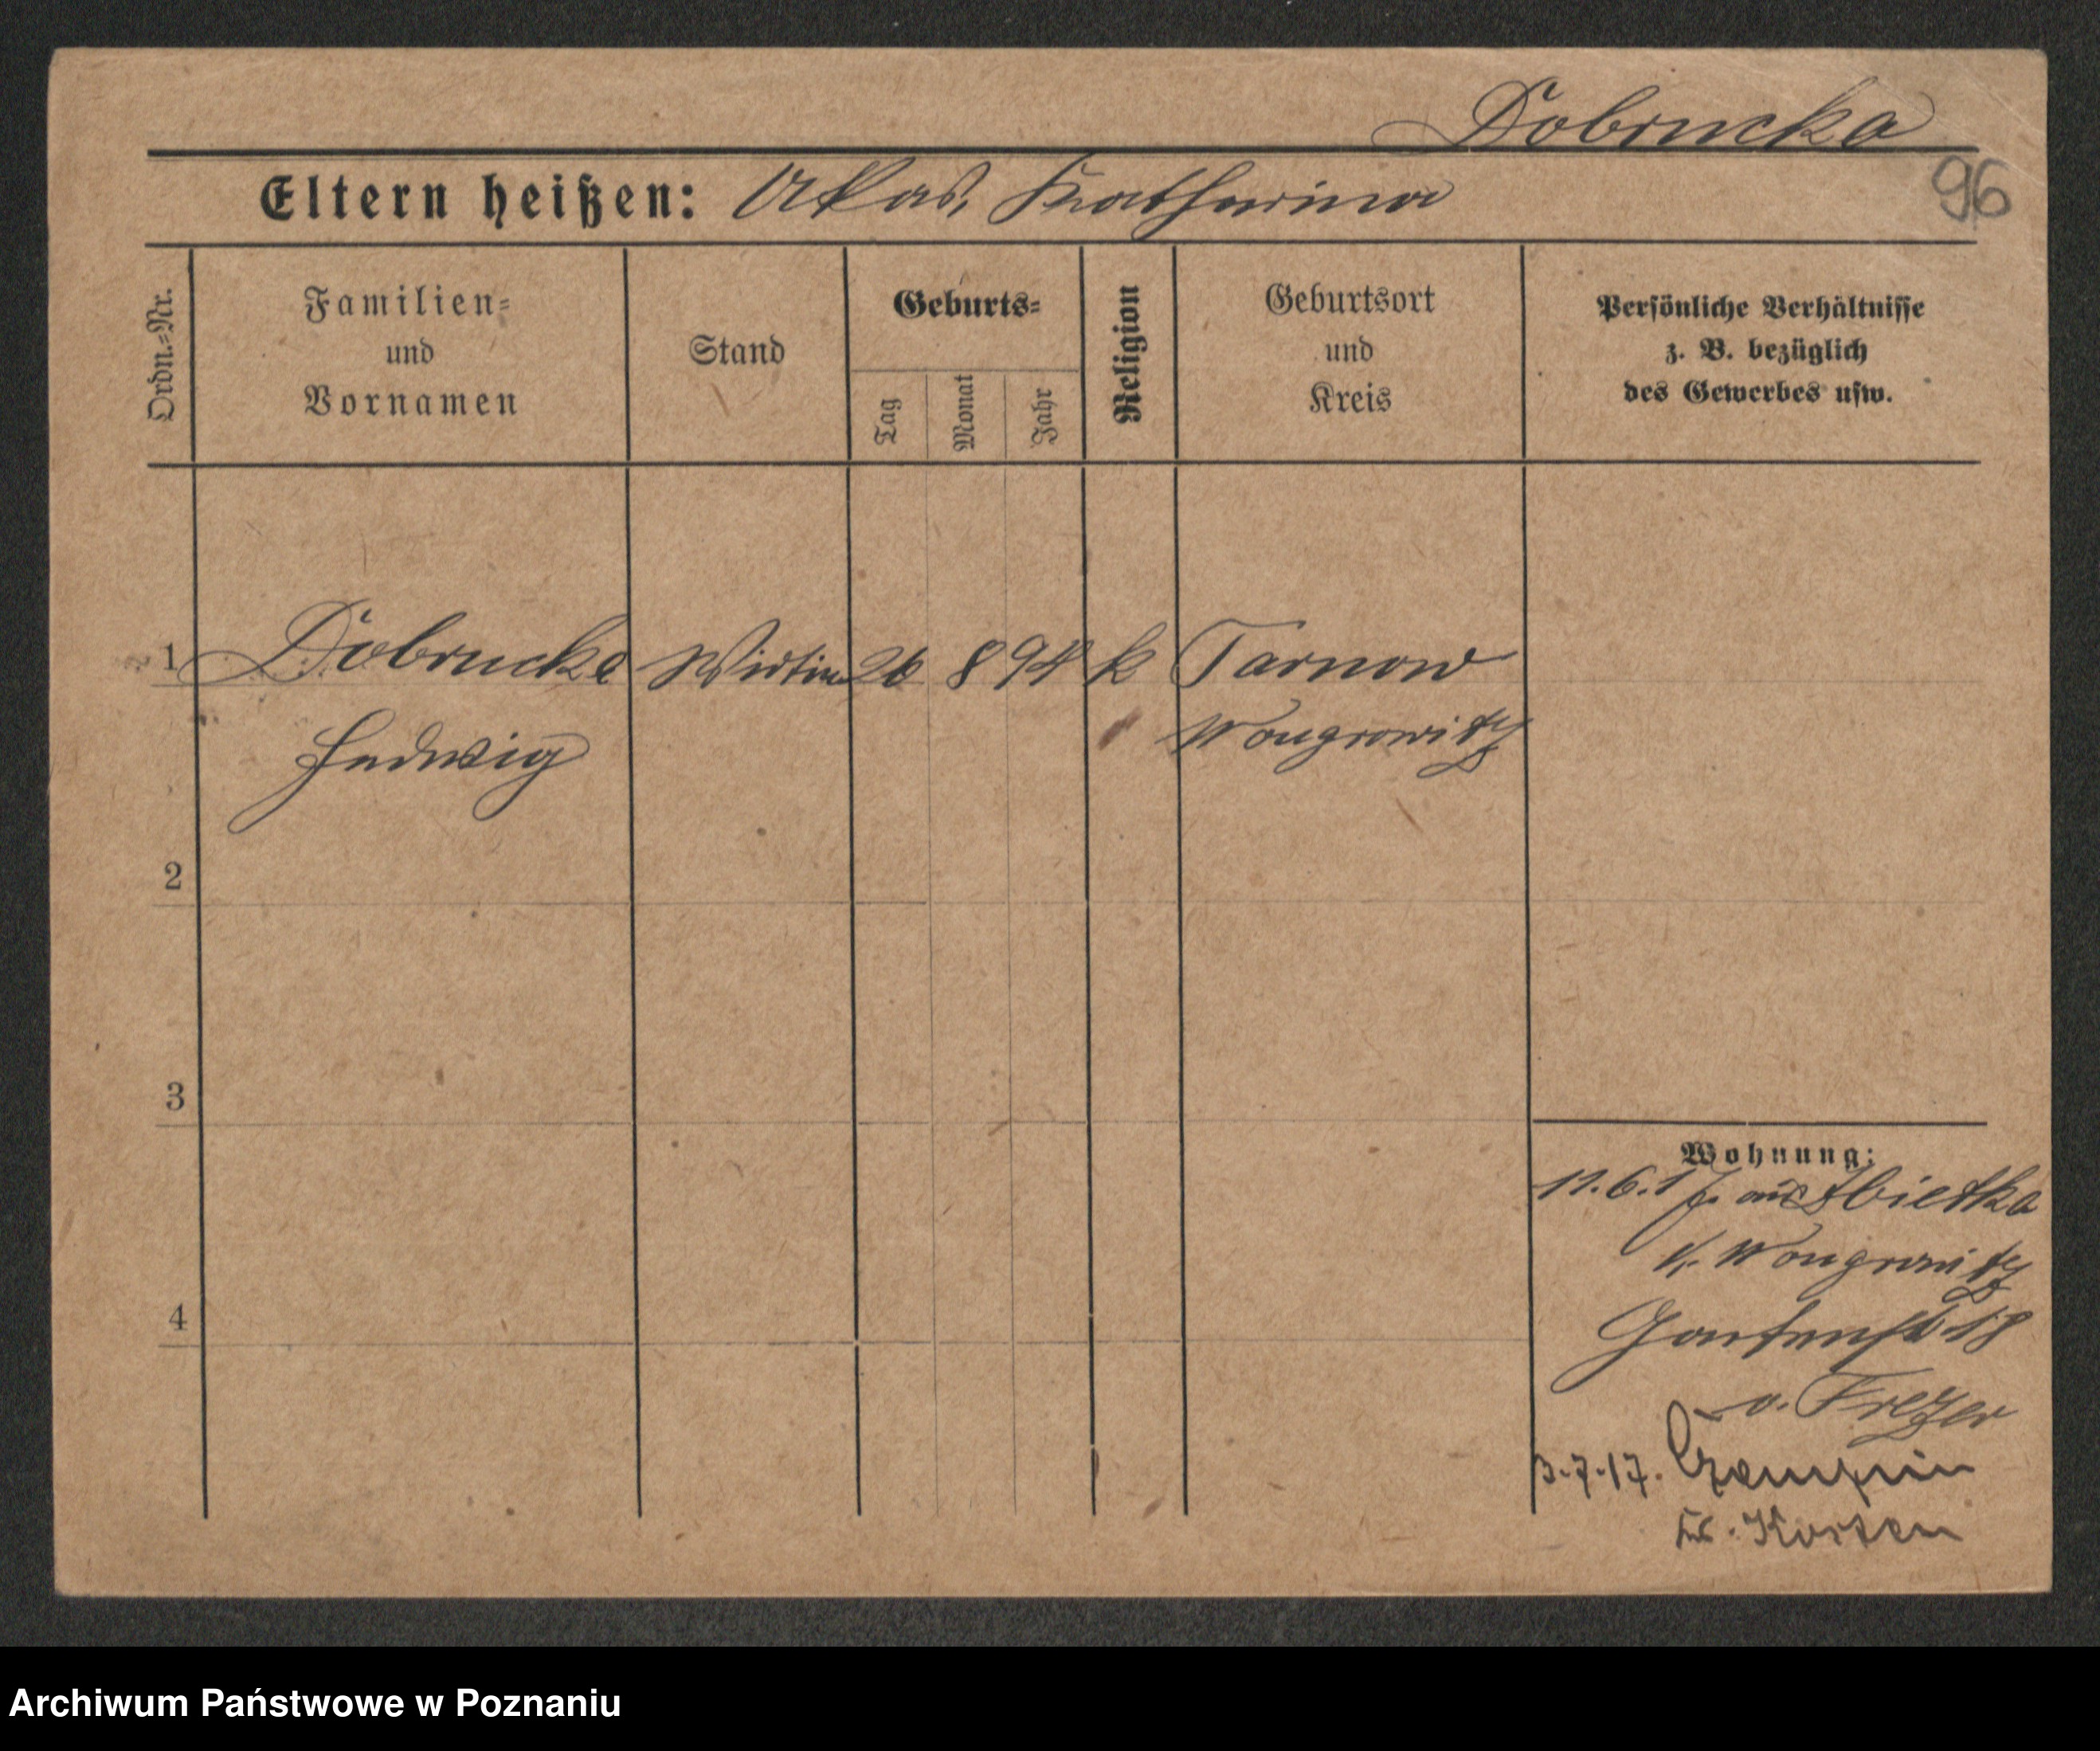 Dobrucka
Eltern heißen: Katharina
96
Ordn.-Nr.
Familien-
und
Vornamen
Stand
Geburts-
Tag
Monat
Jahr
Religion
Geburtsort
und
Kreis
Persönliche Verhältnisse
z. B. bezüglich
des Gewerbes usw.
1 Dobrucka Wirtin 26 8 94 k Tarnow
Hedwig Wongrowitz
2
3
4
Wohnung:
11.6.17. aus Zbietka
K. Wongrowitz
Gartenstr 18
v.
3.7.17. Czempin
Kr. Kosten
Archiwum Państwowe w Poznaniu